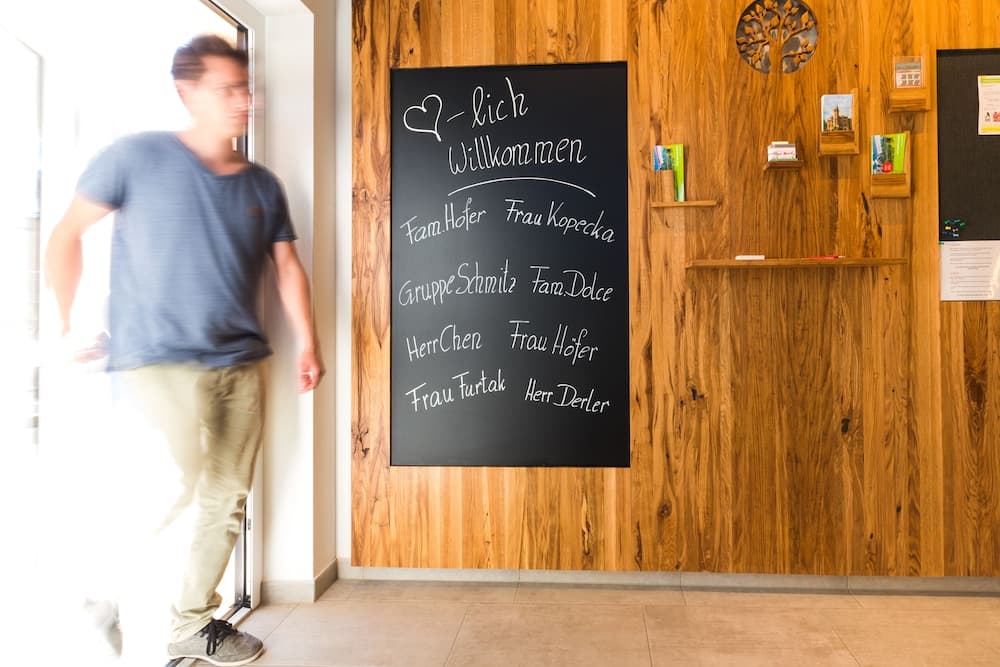 ♡-lich
Willkommen
Fam. Hofer Frau Kopecka
Gruppe Schmitz Fam. Dolce
Herr Chen Frau Höfer
Frau Furtak Herr Derler